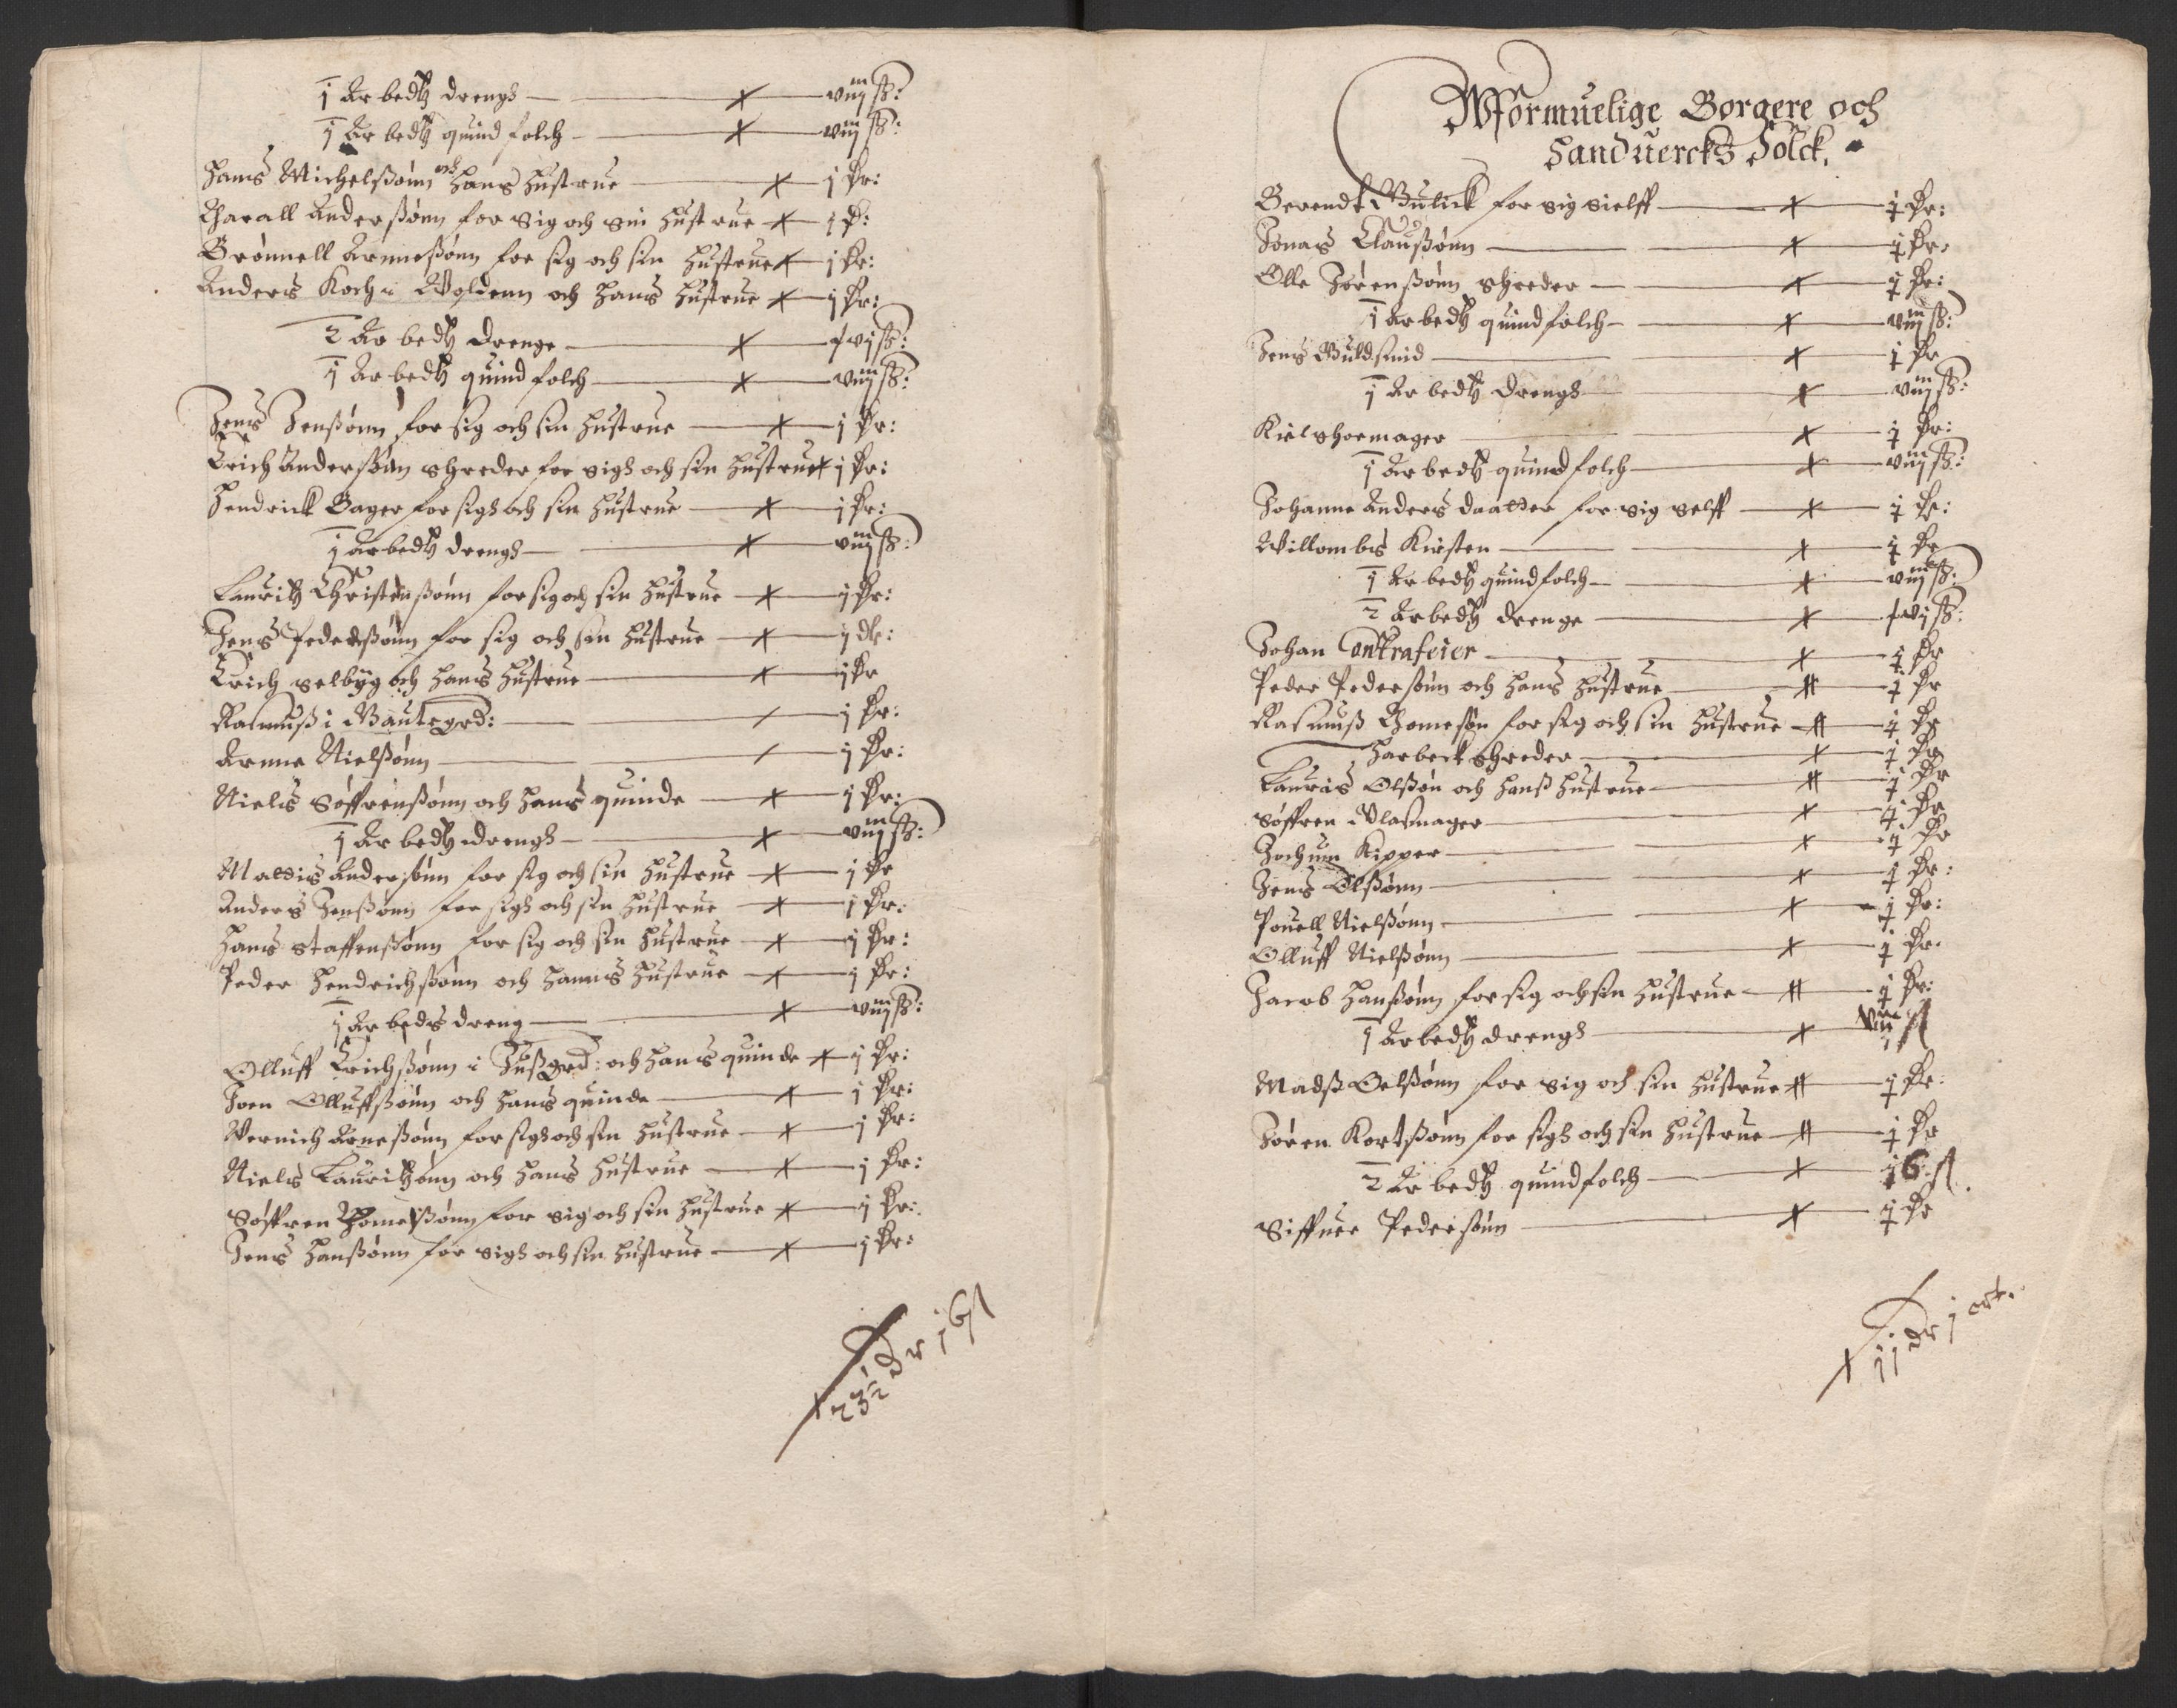 j Arbedtz drengh — viij ß:
j Arbedtz quindfolch — viij ß:
Hans Michelßønn och Hans Hustrue — j dr:
Harall Anderßønn for sig och sin Hustrue — j d:
Brønnell Arnneßønn for sig och sin Hustrue — j dr:
Anders Koch i Woldenn och Hans Hustrue — j dr:
2 Arbedtz drenge — xvj ß:
j Arbedtz quindfolch — viij ß:
Jens Jenßønn for sig och sin Hustrue — j dr:
Erich Anderßøn shreder for sigh och sin Hustrue j dr:
Hendrick Bager for sigh och sin Hustrue — j dr:
j Arbedtz drengh — viij ß:
Lauritz Christenßønn for sig och sin Hustrue — j dr:
Jens Pederßønn for sig och sin Hustrue — j dr:
Erich selbyg och Hans Hustrue — j dr
Rasmuß i Bautegrd: — j dr:
Arnne Nielßønn — j dr:
Niels Søffrenßønn och Hans quinde — j dr:
j Arbedtz drengh — viij ß:
Mattis Anderßønn for sig och sin Hustrue — j dr
Anders Jenßønn for sigh och sin Hustrue — j dr:
Hans staffenßønn for sig och sin Hustrue — j dr:
Peder Hendrichßønn och Hanns Hustrue — j dr:
j Arbeds dreng — viij ß:
Olluff Erichßønn i Jußgrd: och Hans quinde j dr:
Joen Olluffßønn och Hans quinde — j dr:
Wernich Arneßønn for sigh och sin Hustrue — j dr:
Niels Lauritzønn och Hans Hustrue — j dr:
Søffren Thomeßønn for sig och sin Hustrue j dr:
Jens Hanßønn for sigh och sin Hustrue — j dr:
23½ dr 16 ß
Wformuelige Borgere och
Handuercks Folck.
Berendt Bulick for sig sielff — j dr:
Jonas Claußønn — j dr:
Olle Jørenßønn shreder — j dr:
j Arbedtz quindfolch — viij ß:
Jens Guldsmid — j dr
j Arbedtz drengh — viij ß:
Kield shoemager — j dr:
j Arbedtz quindfolch — viij ß:
Johanne Anders daatter for sig selff — j dr:
Willombs Kirsten — j dr
j Arbedtz quindfolch — viij ß:
2 Arbedtz drenge — xvj ß:
Johan Contrafeier — j dr
Peder Pederßønn och Hans Hustrue — j dr
Rasmuß Thomesøn for sig och sin Hustrue — j dr
Harbeck shreder — j dr
Lauris Olßøn och Hanß Hustrue — j dr
Søffren Glasmager — j dr
Jochum Kipper — j dr
Jens Olßønn — j dr:
Pouell Nielßønn — j dr:
Olluff Nielßønn — j dr.
Jacob Hanßønn for sig och sin Hustrue — j dr:
j Arbedtz drengh — viij ß
Madß Oelßønn for sig och sin Hustrue j dr:
Jøren Kortßønn for sigh och sin Hustrue — j dr
2 Arbedtz quindfolch — 16 ß.
Siffuer Pederßønn — j dr
11 dr j ort.